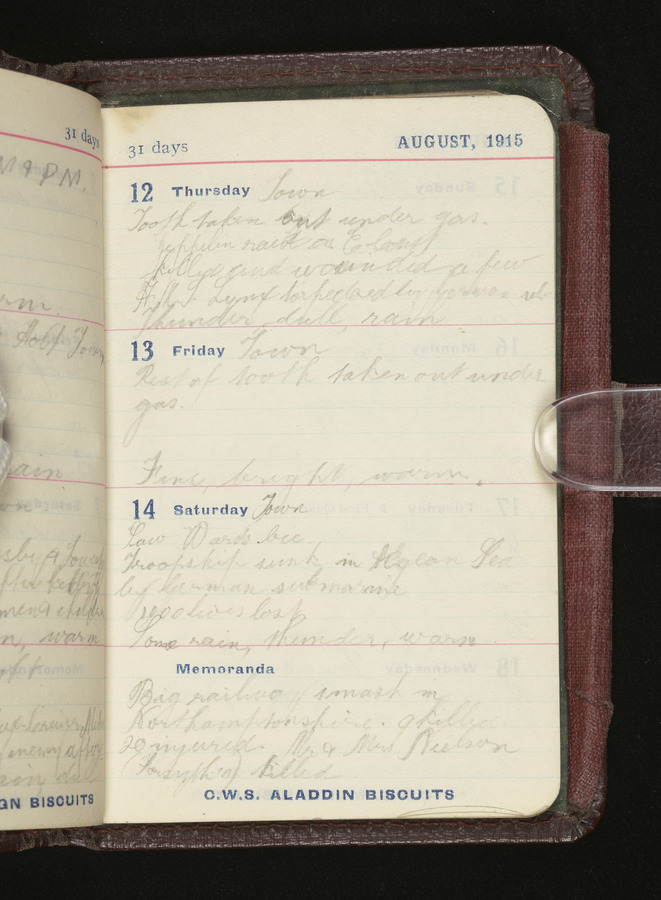 31 days
M 9 PM.
rm.
ain
warm
GN BISCUITS
31 days AUGUST, 1915
12 Thursday Town
Tooth taken out under gas.
Zeppelin raid on E Coast
killed and wounded a few
H.M.S. Lynx torpedoed
Thunder, dull, rain
13 Friday Town
Rest of tooth taken out under
gas.
Fine, bright, warm.
14 Saturday Town
Saw Wards bee.
Troopship sunk in Ægean Sea
by German submarine
lives lost
Some rain, thunder, warm
Memoranda
Big railway smash in
Northamptonshire. 9 killed
20 injured. Mr & Mrs Neilson
(Forsyth) killed
C.W.S. ALADDIN BISCUITS